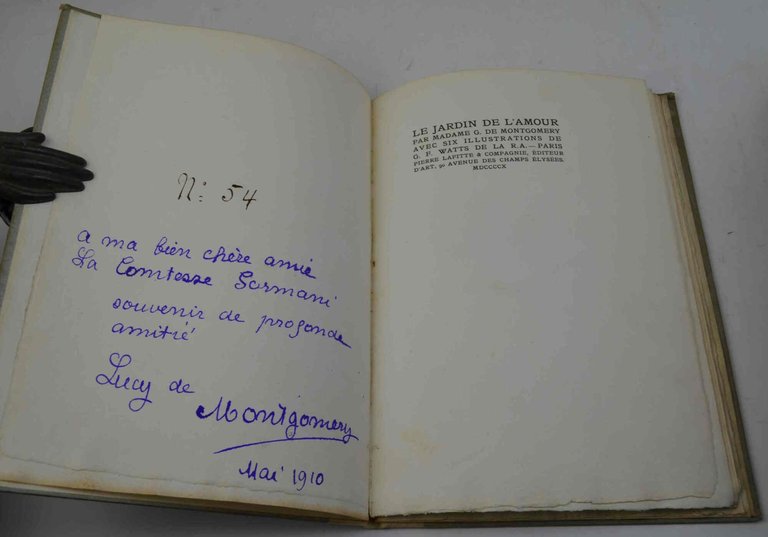 Nº 54
a ma bien chère amie
La Comtesse Sormani
souvenir de profonde
amitié
Lucy de
Montgomery
Mai 1910
LE JARDIN DE L'AMOUR
PAR MADAME G. DE MONTGOMERY
AVEC SIX ILLUSTRATIONS DE
G. F. WATTS DE LA R.A.—PARIS
PIERRE LAFITTE & COMPAGNIE, ÉDITEUR
D'ART. 90 AVENUE DES CHAMPS ÉLYSÉES.
MDCCCCX